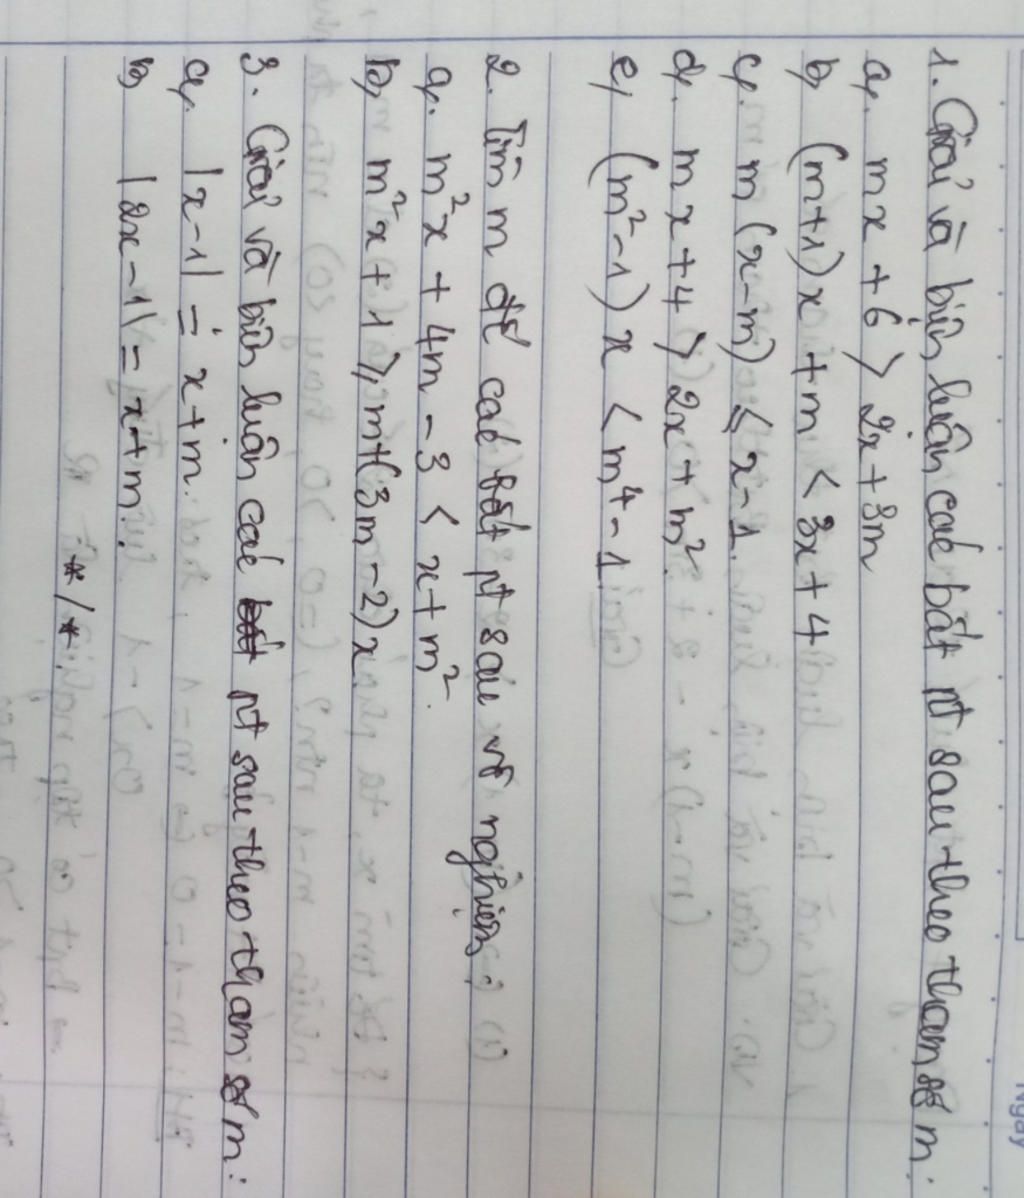 1. Giải và biện luận các bất pt sau theo tham số m:
a, mx + 6 > 2x + 3m
b, (m+1)x + m < 3x + 4
c, m(x-m) ≤ x-1.
d, mx + 4 > 2x + m².
e, (m²-1)x < m⁴-1
2. Tìm m để các bất pt sau vô nghiệm:
a, m²x + 4m - 3 < x + m².
b, m²x + 1 ≥ m+(3m-2)x
3. Giải và biện luận các pt sau theo tham số m:
a, |x-1| = x+m.
b, |2x-1| = x+m.
*/*
Ngày